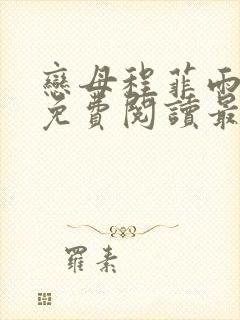 戀母程菲雨
免費閱讀最
羅素